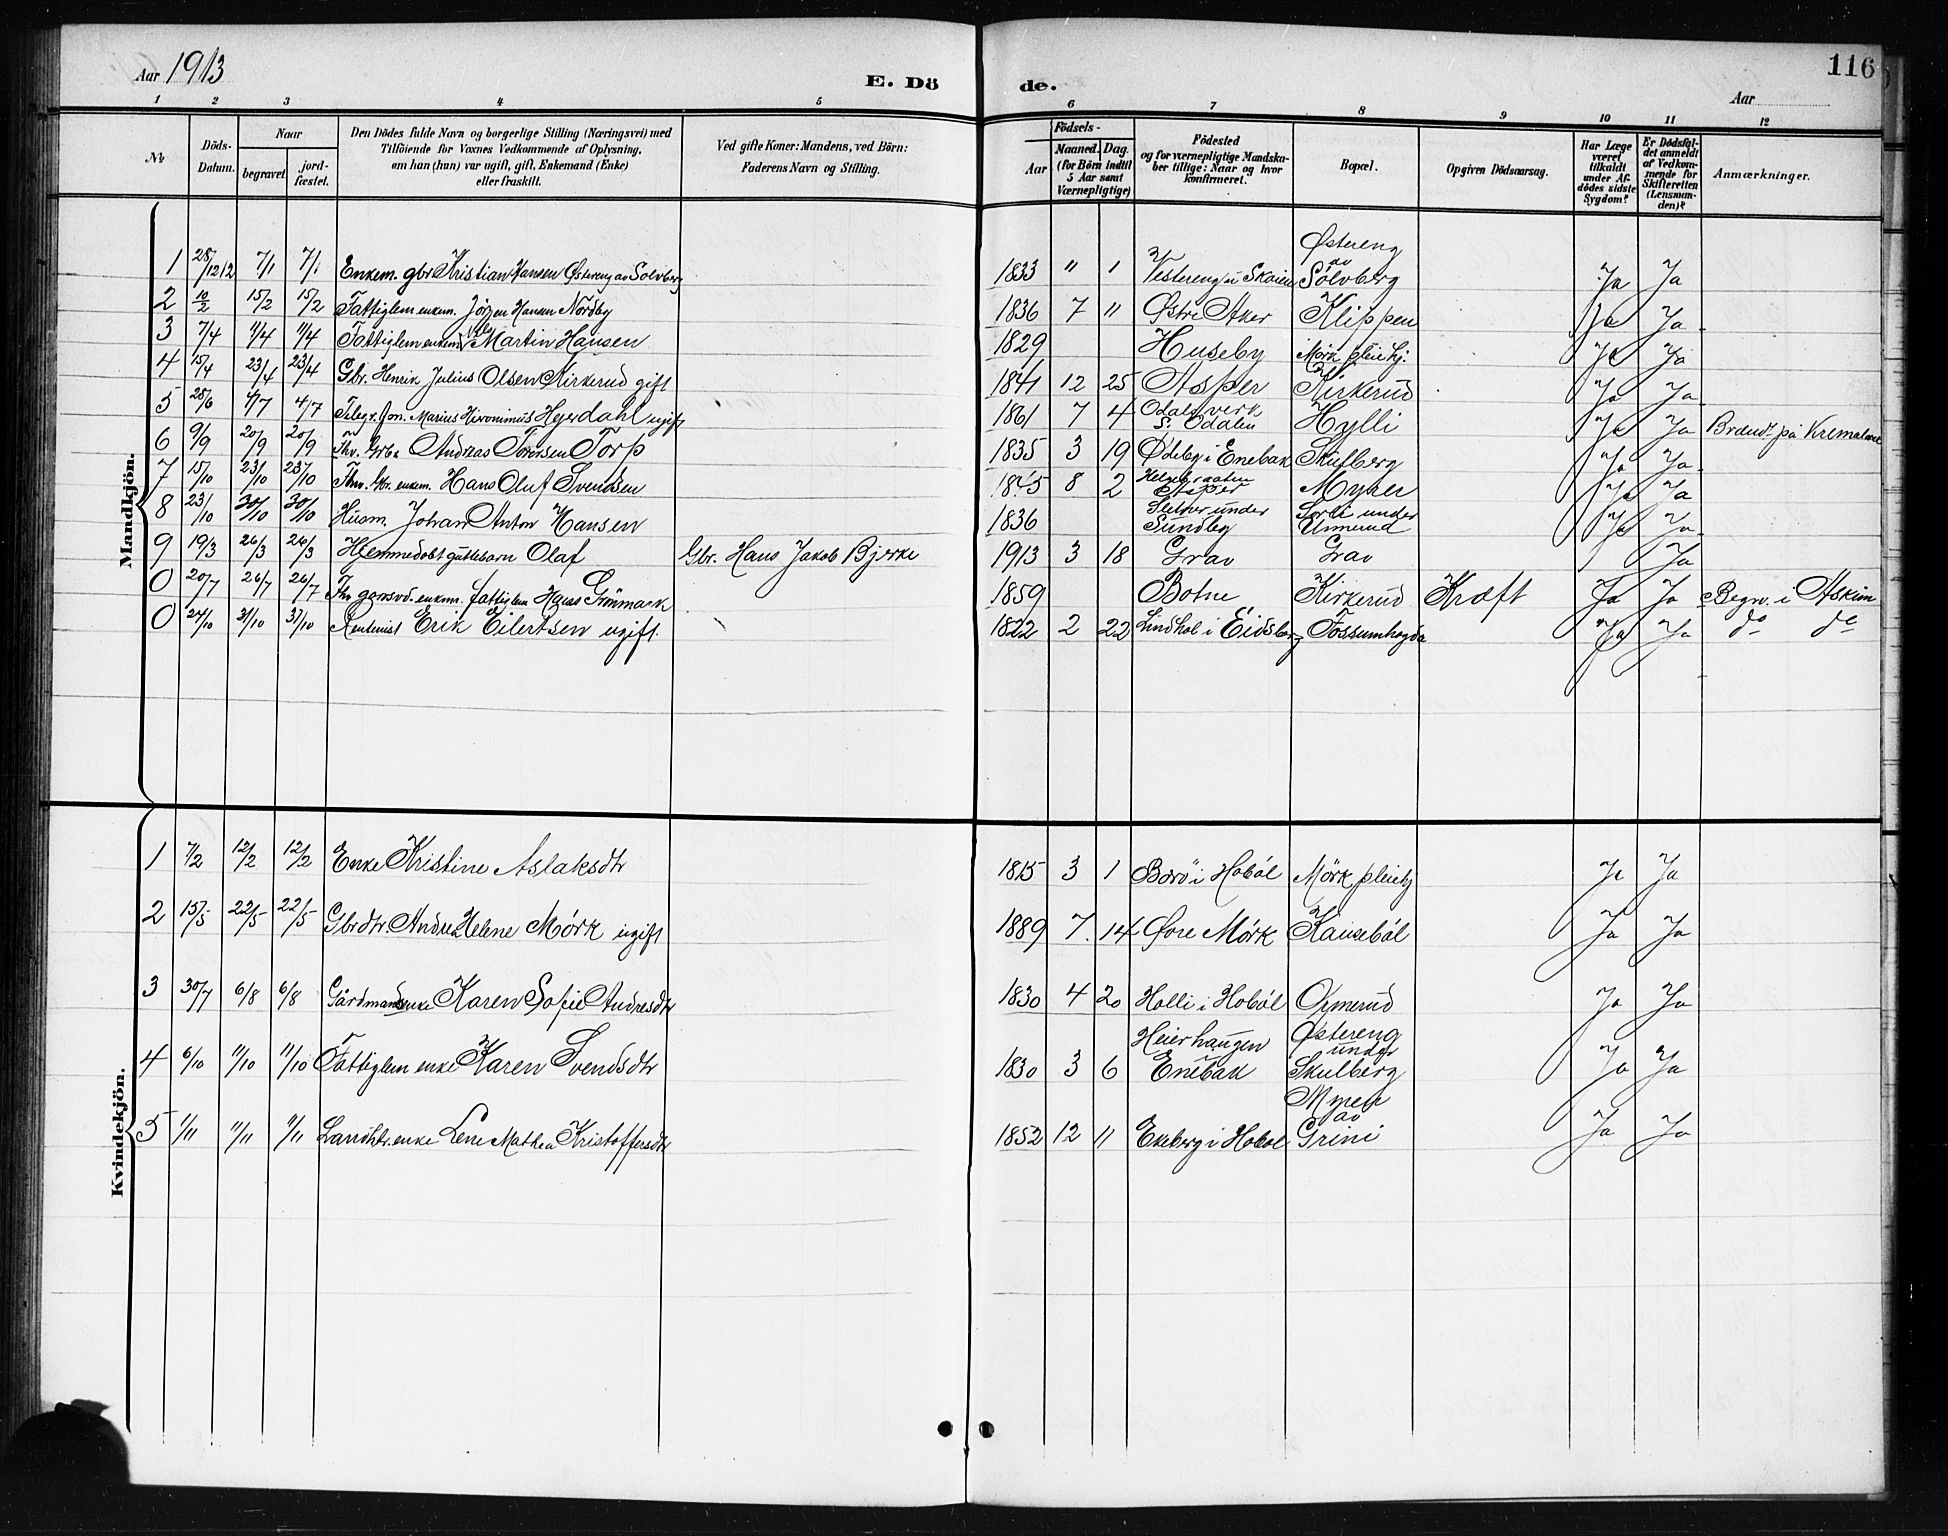 Aar 1913 E. Dö de. 116
Aar
1 2 3 4 5 6 7 8 9 10 11 12
№ Döds-Datum. Naar begravet jordfæstet. Den Dödes fulde Navn og borgerlige Stilling (Næringsvei) med Tilföiende for Voxnes Vedkommende af Oplysning, om han (hun) var ugift, gift, Enkemand (Enke) eller fraskilt. Ved gifte Koner: Mandens, ved Börn: Faderens Navn og Stilling. Födsels- Aar Maaned. Dag. (for Börn indtil 5 Aar samt Værnepligtige) Födested og for værnepligtige Mandskaber tillige: Naar og hvor konfirmeret. Bopæl. Opgiven Dödsaarsag. Har Læge været tilkaldt under Afdödes sidste Sygdom? Er Dödsfaldet anmeldt af Vedkommende for Skifteretten (Lensmanden)? Anmærkninger.
Mandkjön.
1 28/12 12 7/1 7/1 Enkem. gbr Kristian Hansen Østereng av Sólvberg 1833 " 1 Vestereng u Skaien Østereng av Sólvberg Ja Ja
2 10/2 15/2 15/2 Fattiglem enkem. Jörgen Hansen Nordby 1836 7 11 Østre Aker Klippen Ja Ja
3 7/4 11/4 11/4 Fattiglem enkem. Martin Hansen 1829 Huseby Mörk pleiehj. Ja Ja
4 15/4 23/4 23/4 Gbr. Henrik Julius Olsen Kirkerud gift 1841 12 25 Asper Kirkerud Ja Ja
5 28/6 4/7 4/7 Telegr. Marius Hironimus Heyerdahl ugift 1861 7 4 Odals verk S. Odalen Hylli Ja Ja Brændt på Krematoriet
6 9/9 20/9 20/9 Fhv. Grbr Andreas Torp 1835 3 19 Ødeby i Enebak Skulberg Ja Ja
7 15/10 23/10 23/10 Fhv. Gbr. enkem. Hans Oluf Svendsen 1845 8 2 Asper Myrer Ja Ja
8 23/10 30/10 30/10 Husm. Johan Anton Hansen 1836 under Sundby Sorli under Unnerud Ja Ja
9 19/3 26/3 26/3 Hjemmedöbt guttebarn Olaf Gbr. Hans Jakob Bjerke 1913 3 18 Grav Grav Ja
0 20/7 26/7 26/7 Fhv enkem. fattiglem Hans Grönmark 1859 Botne Kirkerud Kræft Ja Ja Begrv. i Askim
0 24/10 31/10 31/10 Rentenist Erik Eilertsen ugift. 1822 2 22 Lindhol i Eidsberg Fossumhøgda Ja Ja do do
Kvindekjön.
1 7/2 12/2 12/2 Enke Kristine Aslaksdtr 1815 3 1 Boro i Hoból Mörk pleiehj Ja Ja
2 15/5 22/5 22/5 Gbrdtr. Andrea Helene Mørk ugift 1889 7 14 Øvre Mørk Kauseból Ja Ja
3 30/7 6/8 6/8 Gårdmandsenke Karen Sofie Andresdtr 1830 4 20 Holli i Hobøl Ormerud Ja Ja
4 6/10 11/10 11/10 Fattiglem enke Karen Svendsdtr 1830 3 6 Heierhaugen Enebak Østereng under Skulberg Ja Ja
5 1/11 11/11 11/11 Landhtr. enke Lene Mathea Kristoffersdtr 1852 12 11 Ekeberg i Hobol Myren av Grini Ja Ja